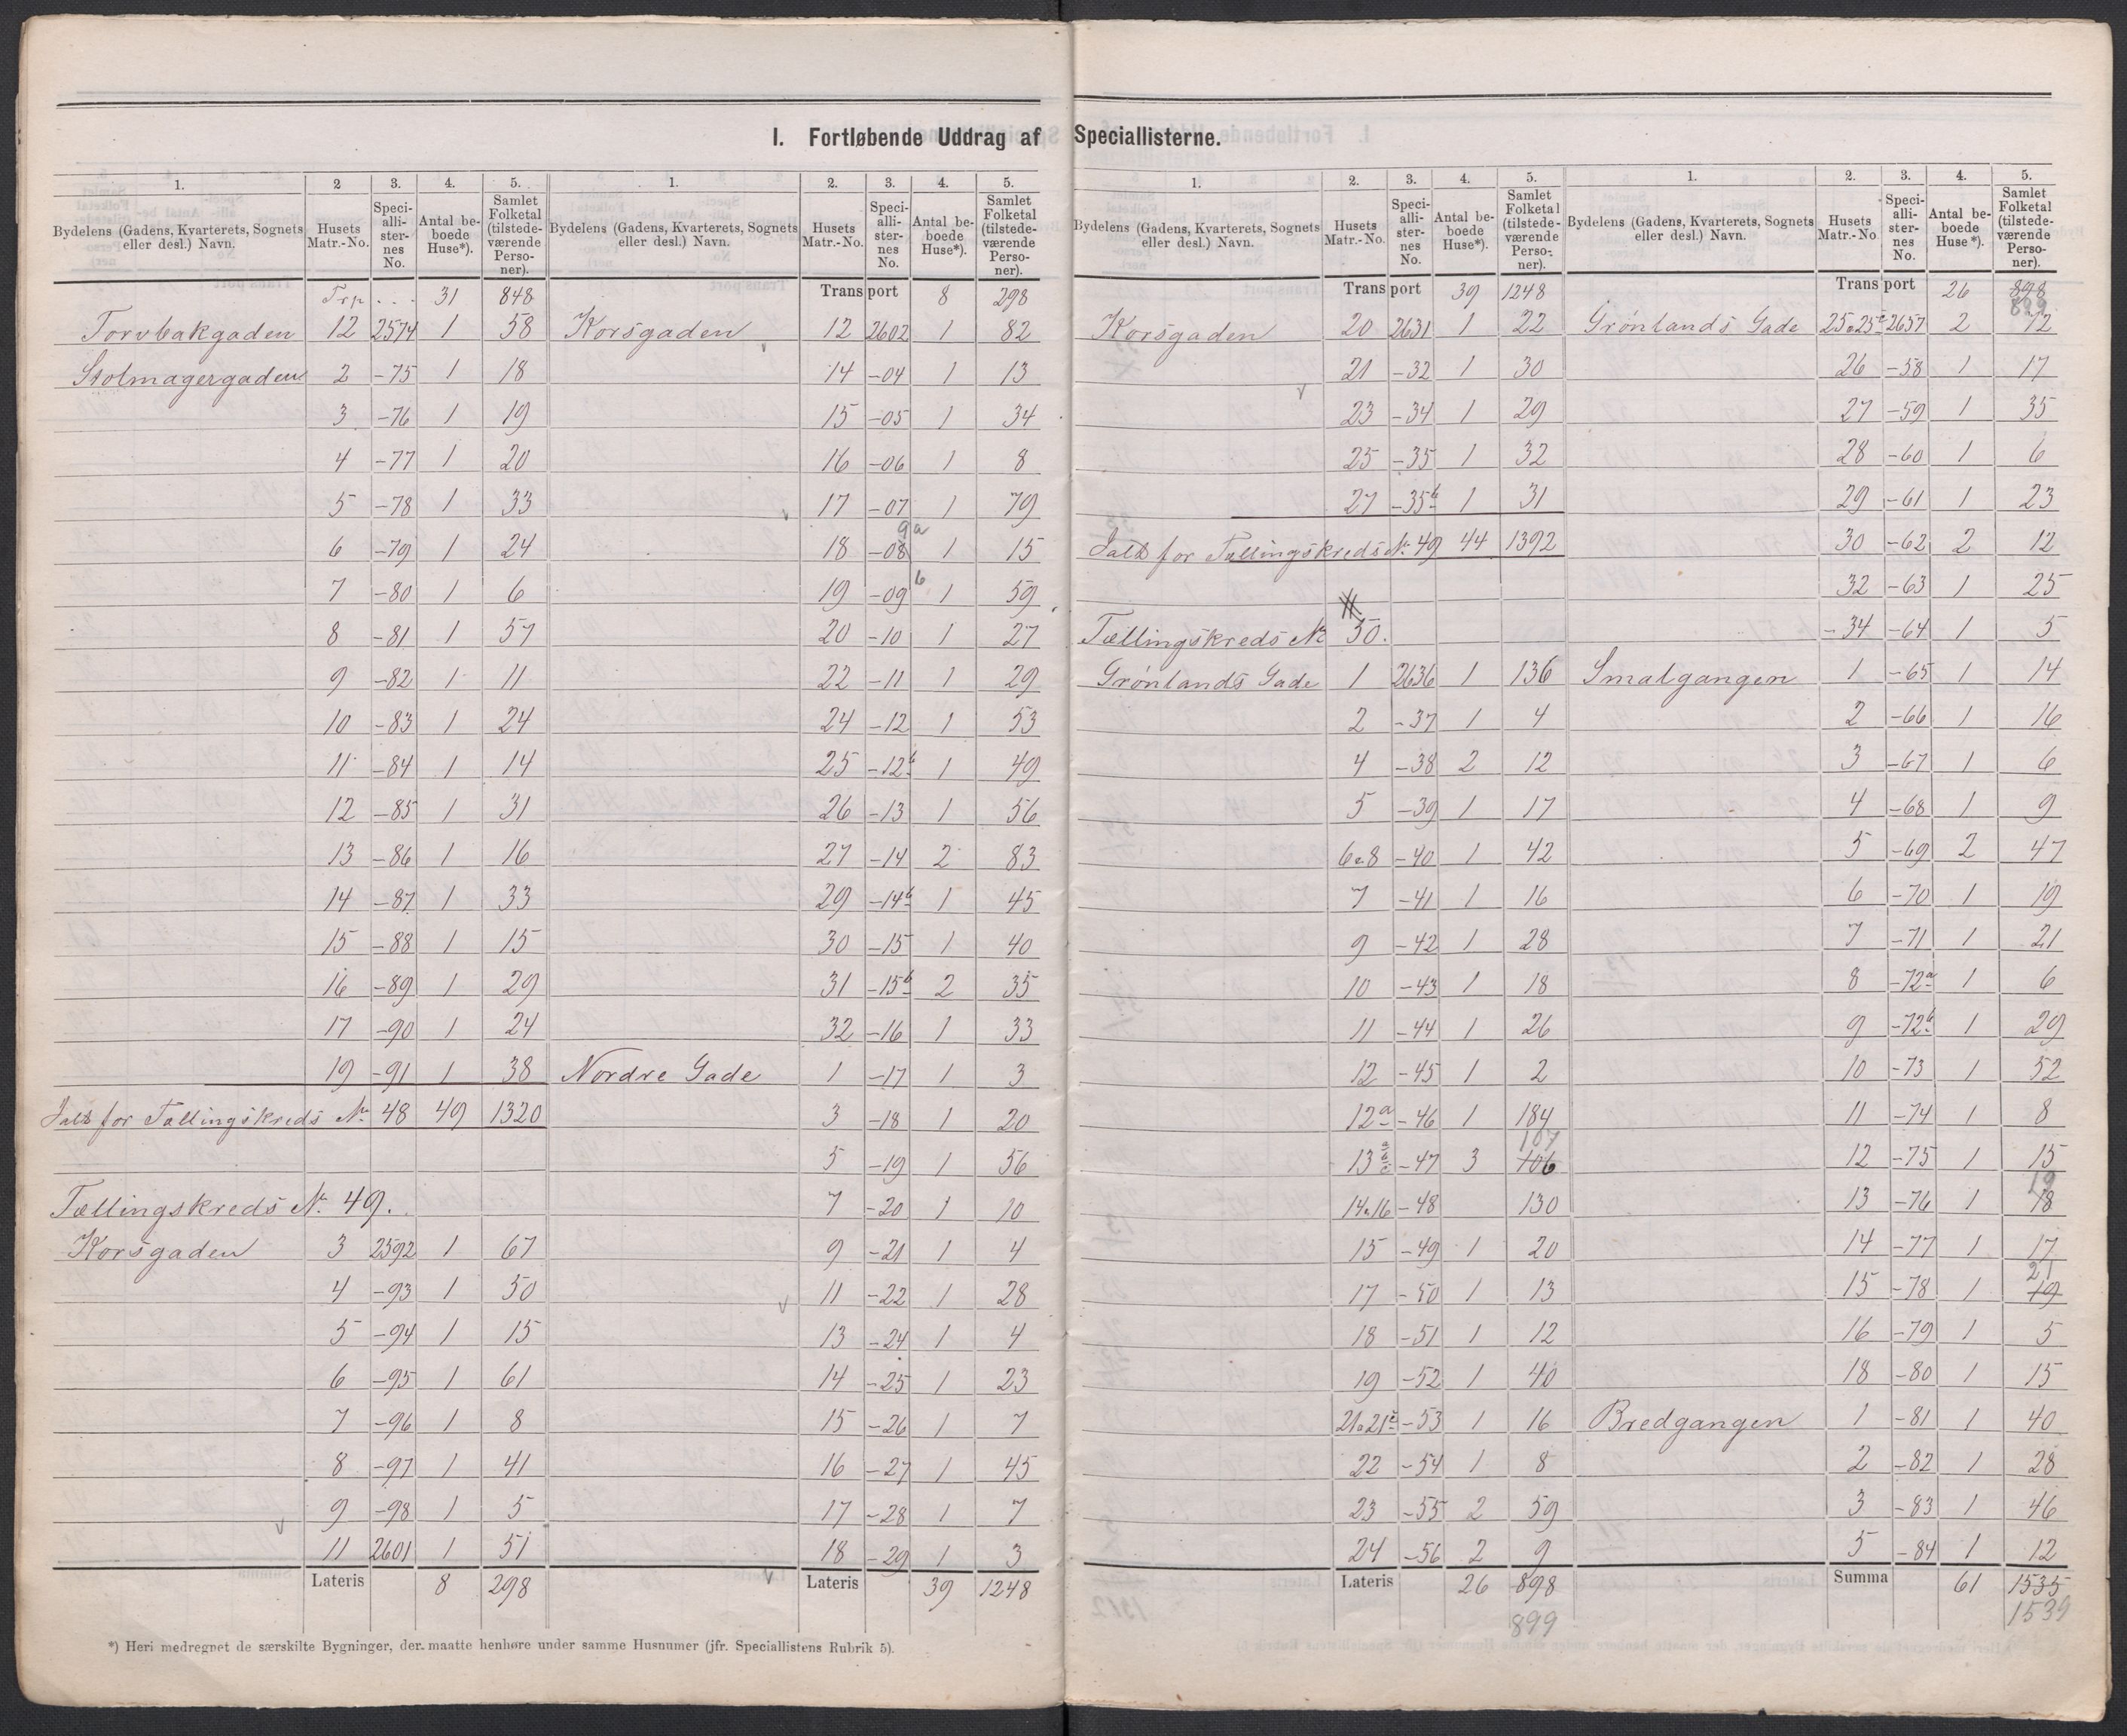 I. Fortløbende Uddrag af Speciallisterne.
1. 2 3. 4. 5.
Bydelens (Gadens, Kvarterets, Sognets eller desl.) Navn. Husets Matr.-No. Speci-alli-ster-nes No. Antal be-boede Huse*). Samlet Folketal (tilstede-værende Perso-ner).
Trp. . . 31 848
Torvbakgaden 12 2574 1 58
Stolmagergaden 2 -75 1 18
3 -76 1 19
4 -77 1 20
5 -78 1 33
6 -79 1 24
7 -80 1 6
8 -81 1 57
9 -82 1 11
10 -83 1 24
11 -84 1 14
12 -85 1 31
13 -86 1 16
14 -87 1 33
15 -88 1 15
16 -89 1 29
17 -90 1 24
19 -91 1 38
Ialt for Tællingskreds No. 48 49 1320
Tællingskreds No. 49.
Korsgaden 3 2592 1 67
4 -93 1 50
5 -94 1 15
6 -95 1 61
7 -96 1 8
8 -97 1 41
9 -98 1 5
11 2601 1 51
Lateris 8 298
1. 2. 3. 4. 5.
Bydelens (Gadens, Kvarterets, Sognets eller desl.) Navn. Husets Matr.-No. Speci-alli-ster-nes No. Antal be-boede Huse*). Samlet Folketal (tilstede-værende Perso-ner).
Transport 8 298
Korsgaden 12 2602 1 82
14 -04 1 13
15 -05 1 34
16 -06 1 8
17 -07 1 79
9a
18 -08 1 15
19 -09 b 1 59
20 -10 1 27
22 -11 1 29
24 -12 1 53
25 -12b 1 49
26 -13 1 56
27 -14 2 83
29 -14b 1 45
30 -15 1 40
31 -15b 2 35
32 -16 1 33
Nordre Gade 1 -17 1 3
3 -18 1 20
5 -19 1 56
7 -20 1 10
9 -21 1 4
11 -22 1 28
13 -24 1 4
14 -25 1 23
15 -26 1 7
16 -27 1 45
17 -28 1 7
18 -29 1 3
Lateris 39 1248
*) Heri medregnet de særskilte Bygninger, der maatte henhøre under samme Husnumer (jfr. Speciallistens Rubrik 5).
1. 2. 3. 4. 5.
Bydelens (Gadens, Kvarterets, Sognets eller desl.) Navn. Husets Matr.-No. Speci-alli-ster-nes No. Antal be-boede Huse*). Samlet Folketal (tilstede-værende Perso-ner).
Transport 39 1248
Korsgaden 20 2631 1 22
21 -32 1 30
23 -34 1 29
25 -35 1 32
27 -35b 1 31
Ialt for Tællingskreds No. 49 44 1392
Tællingskreds No 50.
Grønlands Gade 1 2636 1 136
2 -37 1 4
4 -38 2 12
5 -39 1 17
6 & 8 -40 1 42
7 -41 1 16
9 -42 1 28
10 -43 1 18
11 -44 1 26
12 -45 1 2
12a -46 1 184
107
13 -47 3 106
14 & 16 -48 130
15 -49 1 20
17 -50 1 13
18 -51 1 12
19 -52 1 40
21 & 21c -53 1 16
22 -54 1 8
23 -55 2 59
24 -56 2 9
Lateris 26 898
899
1. 2. 3. 4. 5.
Bydelens (Gadens, Kvarterets, Sognets eller desl.) Navn. Husets Matr.-No. Speci-alli-ster-nes No. Antal be-boede Huse*). Samlet Folketal (tilstede-værende Perso-ner).
Transport 26 898
899
Grønlands Gade 25 & 25c 2657 2 12
26 -58 1 17
27 -59 1 35
28 -60 1 6
29 -61 1 23
30 -62 2 12
32 -63 1 25
34 -64 1 5
Smalgangen 1 -65 1 14
2 -66 1 16
3 -67 1 6
4 -68 1 9
5 -69 2 47
6 -70 1 19
7 -71 1 21
8 -72a 1 6
9 -72b 1 29
10 -73 1 52
11 -74 1 8
12 -75 1 15
19
13 -76 1 18
14 -77 1 17
21
15 -78 1 19
16 -79 1 5
18 -80 1 15
Bredgangen 1 -81 1 40
2 -82 1 28
3 -83 1 46
5 -84 1 12
Summa 61 1535
1539